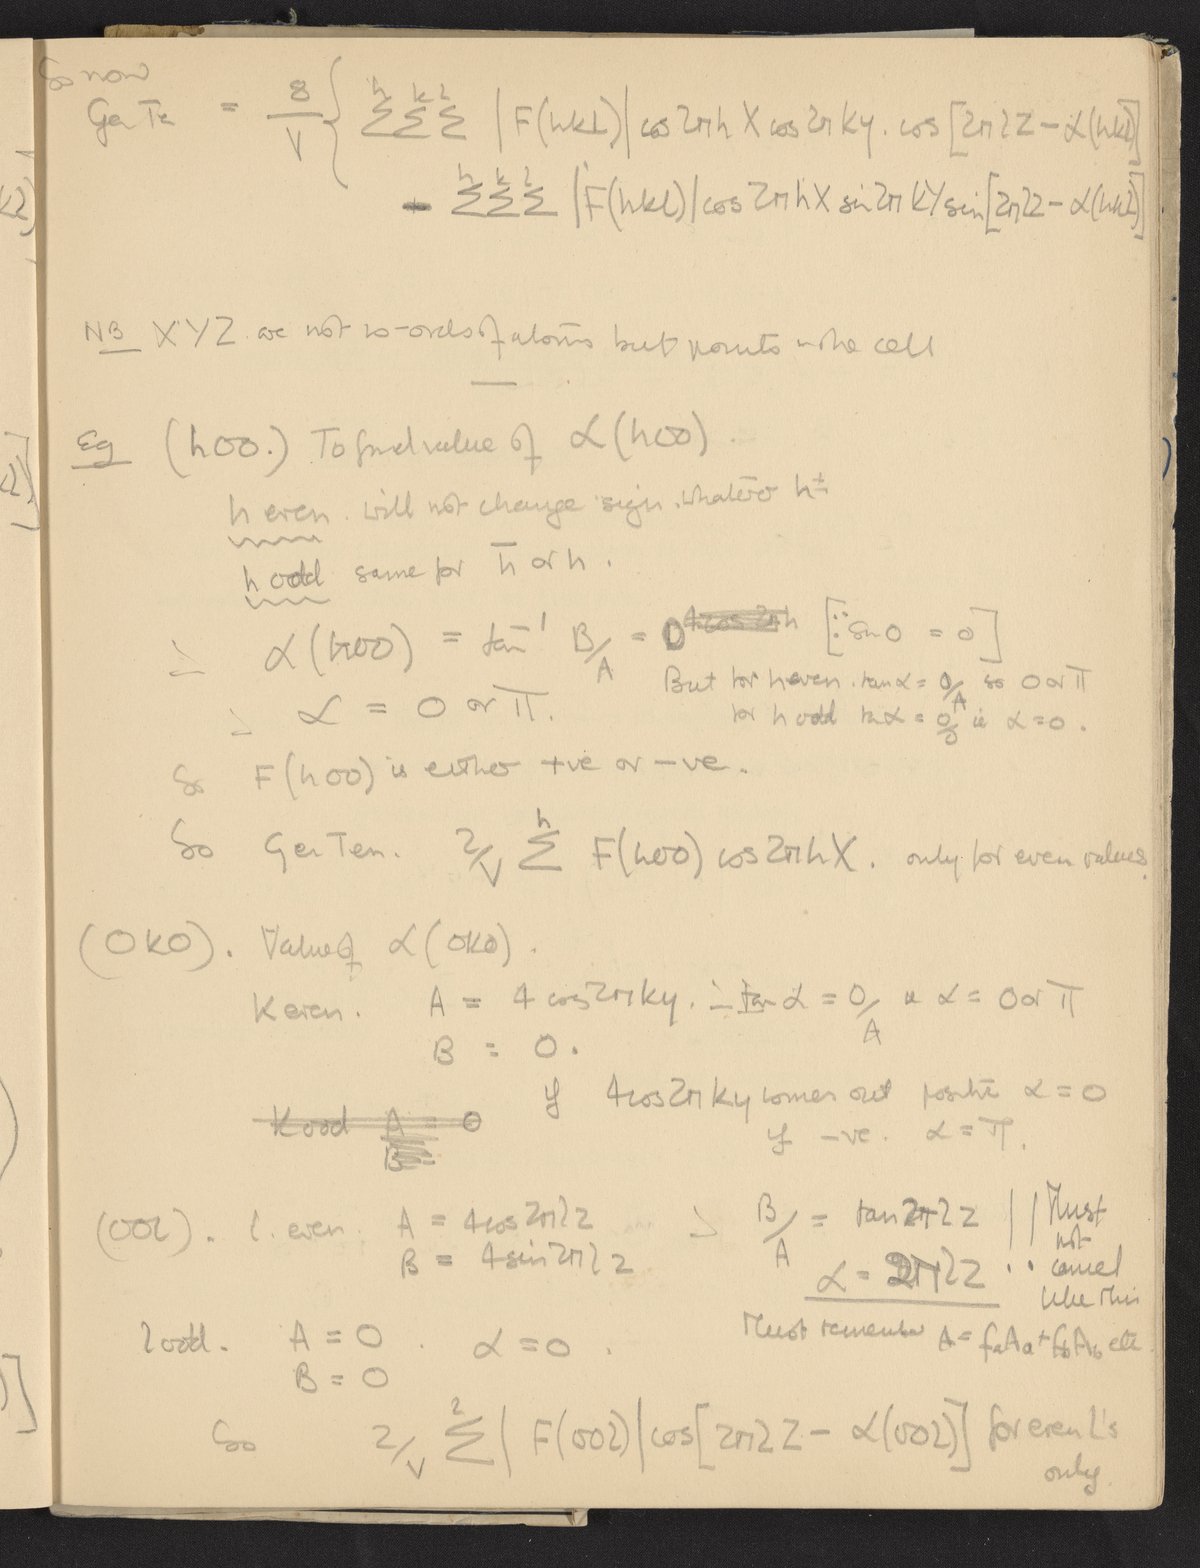 So now
Gen Te = 8/V { Σ^h Σ^k Σ^l |F(hkl)| cos 2πhX cos 2πky. cos [2πlZ − α(hkl)]
− Σ^h Σ^k Σ^l |F(hkl)| cos 2πhX sin 2πkY sin [2πlZ − α(hkl)]
NB XYZ are not co-ords of atoms but points in the cell
Eg (h00.) To find value of α(h00).
h even. will not change sign. whatever h±
h odd same for h̄ or h.
∴ α(h00) = tan⁻¹ B/A = 0 4cos2πh [∵ sin 0 = 0]
But for h even. tan α = 0/A so 0 or π
∴ α = 0 or π.
for h odd tan α = 0/0 ie α = 0.
So F(h00) is either +ve or −ve.
So Gen Ten. 2/V Σ^h F(h00) cos 2πhX. only for even values.
(0k0). Value of α(0k0).
K even. A = 4 cos 2πky. ∴ tan α = 0/A ie α = 0 or π
B = 0.
if 4cos2πky comes out positive α = 0
K odd A = 0
B
if −ve. α = π.
(00l). l. even. A = 4cos2πlz ∴ B/A = tan 2πlz || Must
not
cancel
like this
B = 4sin2πlz
α = 2πlz ..
Must remember A = faAa + fbAb etc.
l odd. A = 0. α = 0.
B = 0
So 2/V Σ^l |F(00l)| cos [2πlZ − α(00l)] for even l's
only.